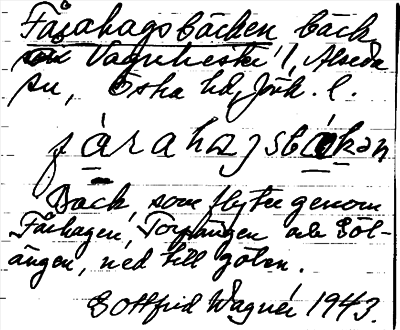 Fårahagsbäcken bäck
vid Vagnhester !, Alseda
sn, Östra hd, Jönk. l.
fårahagsbäkən
Bäck, som flyter genom
Fårhagen, Torpängen och Göl-
ängen, ned till gölen.
Gottfrid Wagnér 1943.